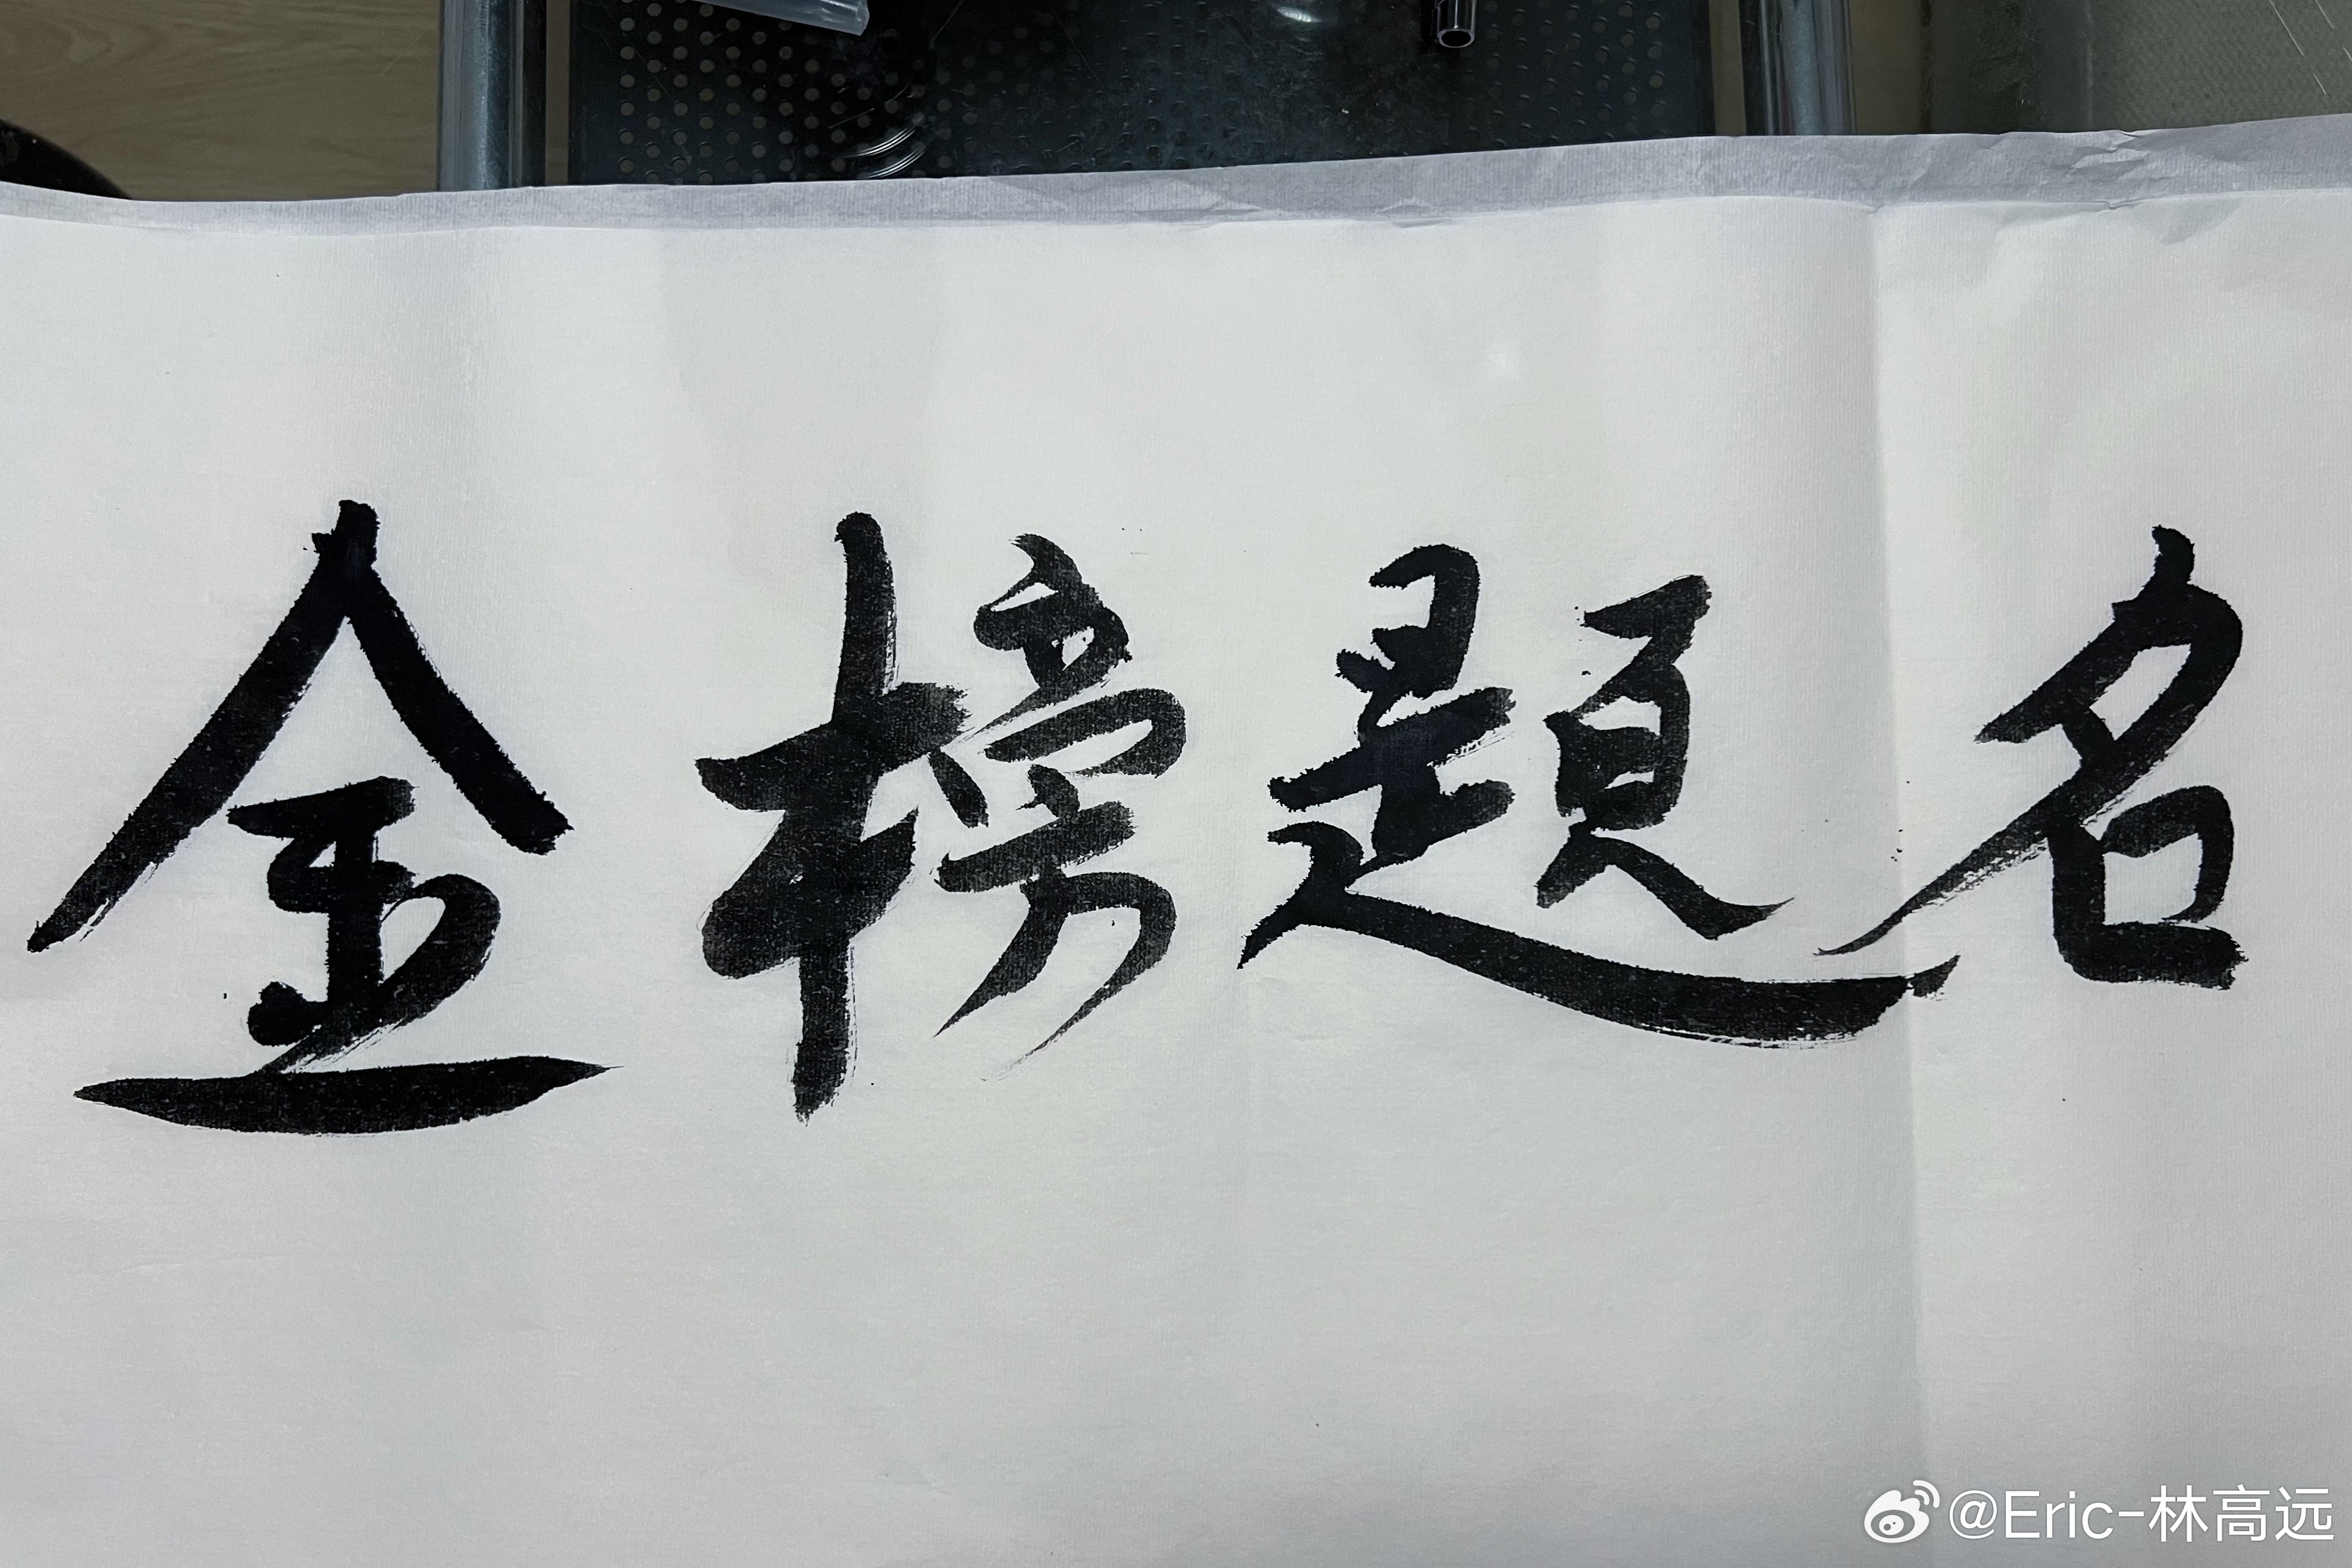 金榜題名
@Eric-林高远